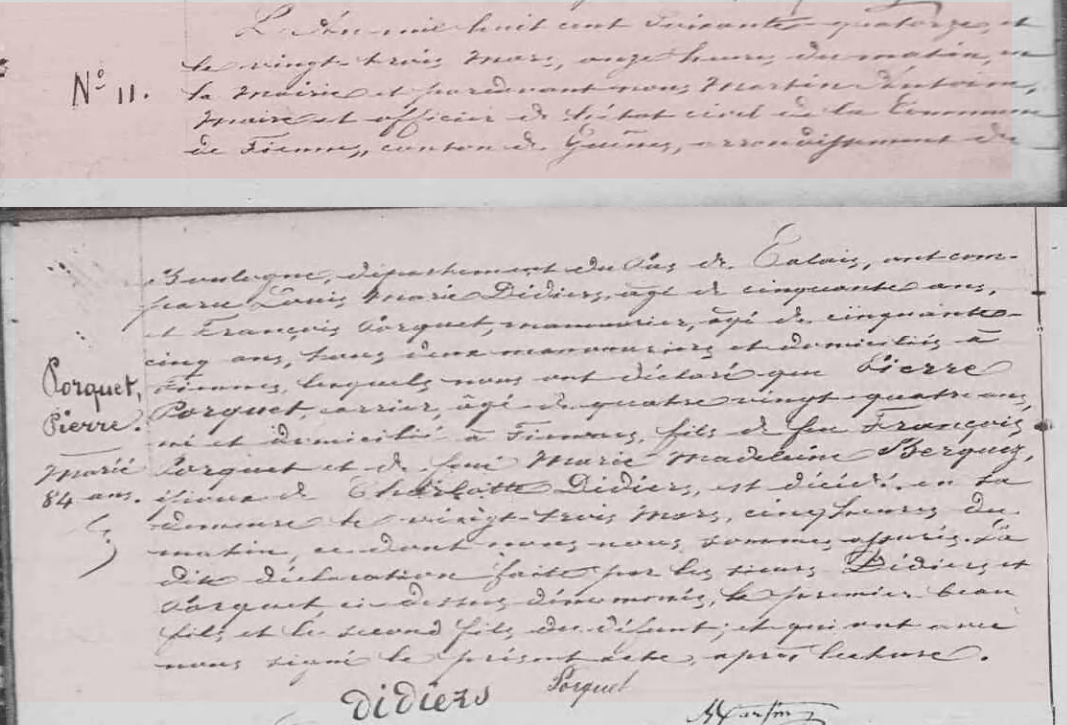 L'An mil huit cent soixante-quatorze, et
le vingt-trois Mars, onze heures du matin, en
N° 11.
la Mairie et pardevant nous Martin Antoine,
Maire et officier de l'état civil de la Commune
de Fiennes, canton de Guînes, arrondissement de
Boulogne, département du Pas de Calais, ont com-
paru Louis Marie Didiers, âgé de cinquante ans,
et François Porquet, manouvrier, âgé de cinquante-
cinq ans, tous deux manouvriers et domiciliés à
Porquet,
Pierre.
Fiennes, lesquels nous ont déclaré que Pierre
Porquet, carrier, âgé de quatre-vingt-quatre ans,
né et domicilié à Fiennes, fils de feu François
Marié
84 ans.
Porquet et de feue Marie Madeleine Berquez,
époux de Charlotte Didiers, est décédé en sa
demeure le vingt-trois Mars, cinq heures du
matin, ce dont nous nous sommes assurés. La
dite déclaration faite par les sieurs Didiers et
Porquet ci-dessus dénommés, le premier beau
fils et le second fils du défunt; et qui ont avec
nous signé le présent acte, après lecture.
Didiers Porquet
Martin